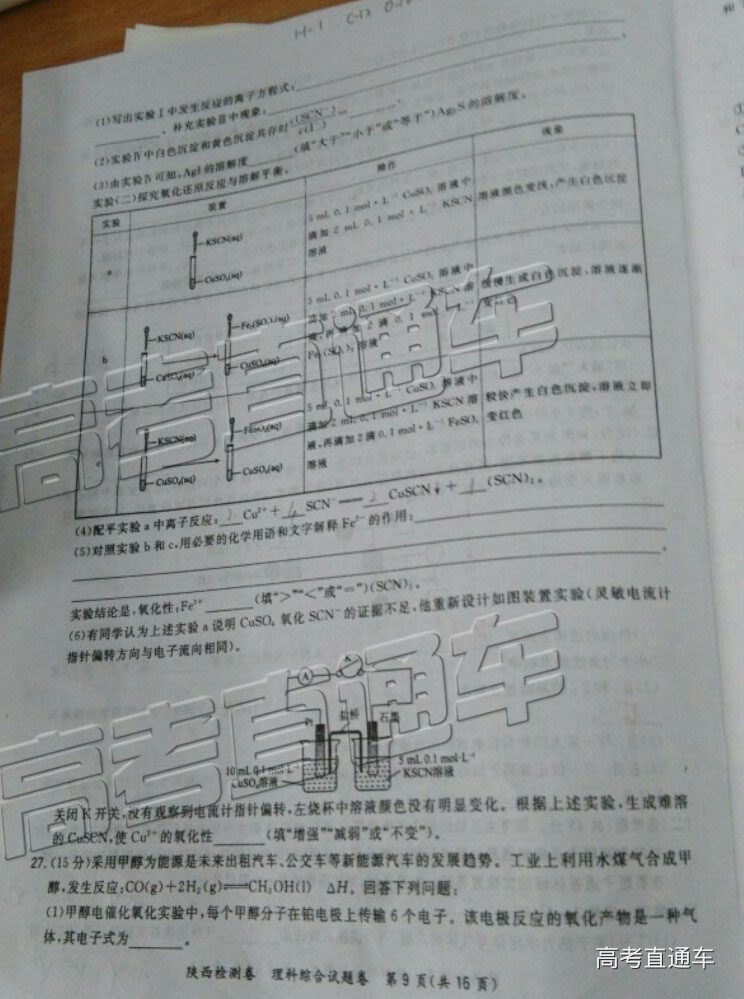 H-1 C-12
(1)写出实验Ⅰ中发生反应的离子方程式:
、补充实验Ⅲ中现象:
(2)实验Ⅳ中白色沉淀和黄色沉淀共存时c(SCN⁻)/c(I⁻)=
(3)由实验Ⅳ可知,AgI的溶解度 (填“大于”“小于”或“等于”)Ag₂S的溶解度。
实验(二)探究氧化还原反应与溶解平衡。
实验 装置 操作 现象
a
KSCN(aq)
CuSO₄(aq)
5 mL 0.1 mol·L⁻¹ CuSO₄ 溶液中
滴加 2 mL 0.1 mol·L⁻¹ KSCN
溶液
溶液颜色变浅,产生白色沉淀
b
KSCN(aq)
CuSO₄(aq)
Fe₂(SO₄)₃(aq)
CuSO₄(aq)
5 mL 0.1 mol·L⁻¹ CuSO₄ 溶液中
滴加 2 mL 0.1 mol·L⁻¹ KSCN 溶
液,再滴加 2 滴 0.1 mol·L⁻¹
Fe₂(SO₄)₃ 溶液
缓慢生成白色沉淀、溶液逐渐
变红色
c
KSCN(aq)
CuSO₄(aq)
FeSO₄(aq)
CuSO₄(aq)
5 mL 0.1 mol·L⁻¹ CuSO₄ 溶液中
滴加 2 mL 0.1 mol·L⁻¹ KSCN 溶
液,再滴加 2 滴 0.1 mol·L⁻¹ FeSO₄
溶液
较快产生白色沉淀、溶液立即
变红色
(4)配平实验 a 中离子反应: 2 Cu²⁺+ SCN⁻== 2 CuSCN↓+ 1 (SCN)₂。
(5)对照实验 b 和 c,用必要的化学用语和文字解释 Fe²⁺ 的作用:
。
实验结论是,氧化性:Fe³⁺ (填“>”“<”或“=”)(SCN)₂。
(6)有同学认为上述实验 a 说明 CuSO₄ 氧化 SCN⁻ 的证据不足,他重新设计如图装置实验(灵敏电流计
指针偏转方向与电子流向相同)。
A K
Pt 盐桥 石墨
10 mL 0.1 mol·L⁻¹
CuSO₄溶液
5 mL 0.1 mol·L⁻¹
KSCN溶液
关闭 K 开关,没有观察到电流计指针偏转,左烧杯中溶液颜色没有明显变化。根据上述实验,生成难溶
的 CuSCN,使 Cu²⁺ 的氧化性 (填“增强”“减弱”或“不变”)。
27.(15 分)采用甲醇为能源是未来出租汽车、公交车等新能源汽车的发展趋势。工业上利用水煤气合成甲
醇,发生反应:CO(g)+2H₂(g)⇌CH₃OH(l) ΔH。回答下列问题:
(1)甲醇电催化氧化实验中,每个甲醇分子在铂电极上传输 6 个电子。该电极反应的氧化产物是一种气
体,其电子式为 。
陕西检测卷 理科综合试题卷 第 9 页(共 16 页)
高考直通车
高考直通车
高考直通车
和